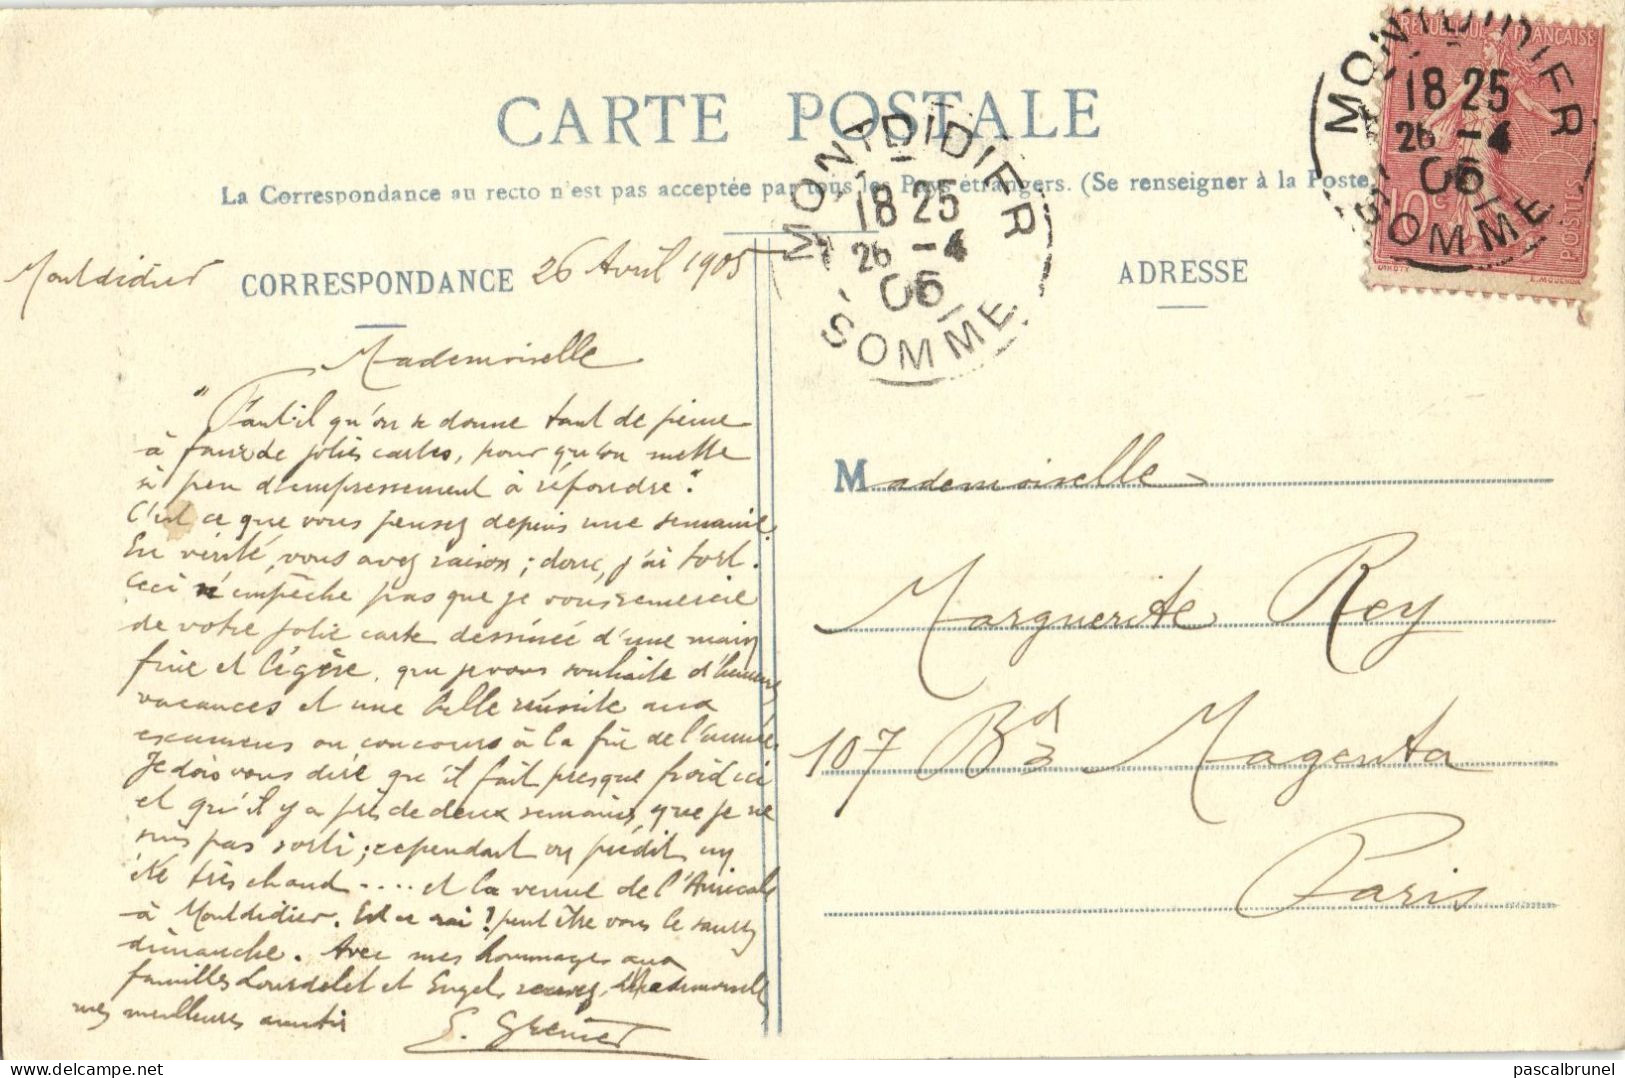 CARTE POSTALE
La Correspondance au recto n'est pas acceptée par tous les Pays étrangers. (Se renseigner à la Poste
CORRESPONDANCE
ADRESSE
Montdidier 26 Avril 1905
Mademoiselle
"Faut-il qu'on se donne tant de peine
à faire de jolies cartes, pour qu'on mette
si peu d'empressement à répondre".
C'est ce que vous pensez depuis une semaine.
En vérité, vous avez raison ; donc, j'ai tort.
Ceci n'empêche pas que je vous remercie
de votre jolie carte dessinée d'une main
fine et légère, que je vous souhaite d'heureuses
vacances et une belle réussite aux
examens ou concours à la fin de l'année.
Je dois vous dire qu'il fait presque froid ici
et qu'il y a près de deux semaines que je ne
suis pas sorti ; cependant on prédit un
été très chaud .... et la venue de l'Amicale
à Montdidier. Est-ce vrai ? peut être vous le saurez
dimanche. Avec mes hommages aux
familles Lourdelet et Engel, recevez, Mademoiselle
mes meilleures amitiés
E. Grenier
Mademoiselle
Marguerite Rey
107 Bd Magenta
Paris
MONTDIDIER
18 25
26 -4
05
SOMME
REPUBLIQUE FRANÇAISE
10c
POSTES
MONTDIDIER
18 25
26 -4
05
SOMME
delcampe.net
pascalbrunel